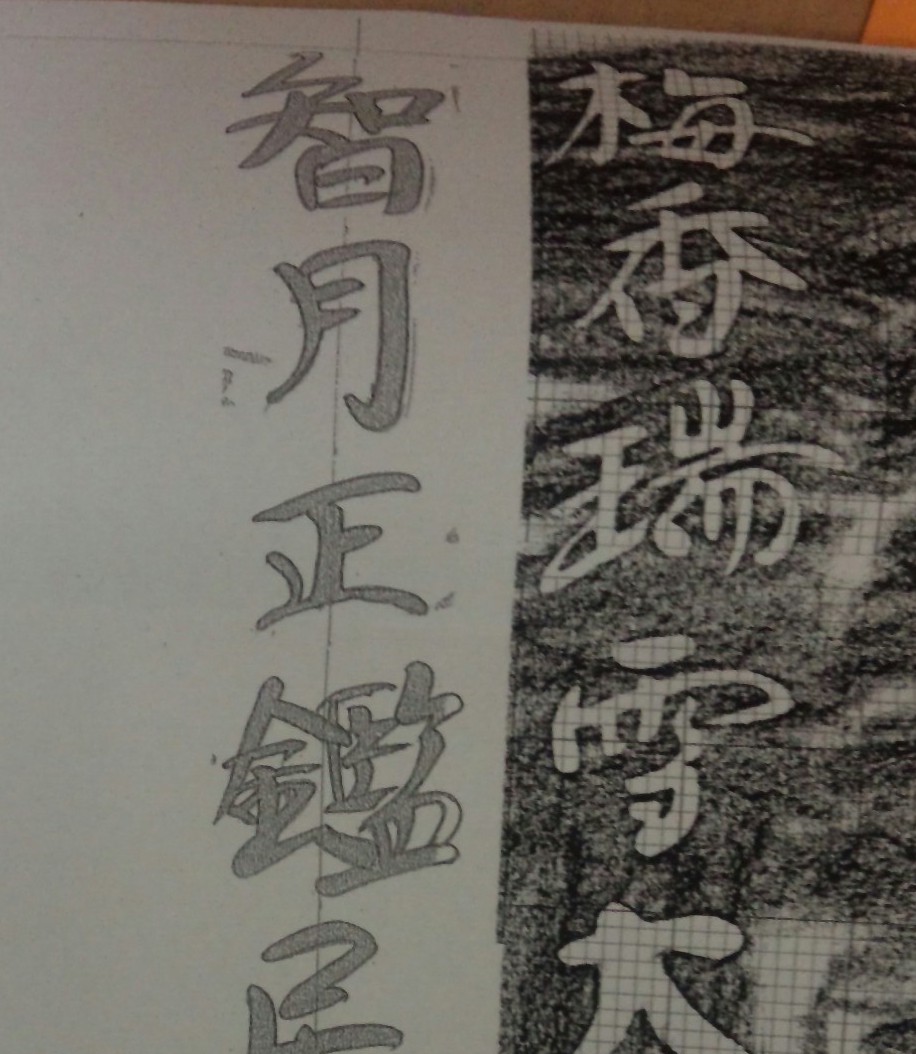 梅香瑞雪
智月正鑑